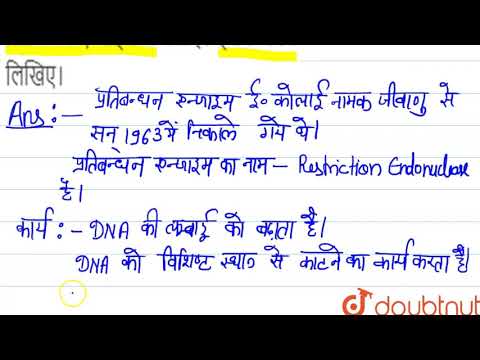 लिखिए।
Ans:- प्रतिबन्धन एन्जाइम ई० कोलाई नामक जीवाणु से
सन् 1963 में निकाले गये थे।
प्रतिबन्धन एन्जाइम का नाम - Restriction Endonuclease
है।
कार्य :- DNA की लम्बाई को बढ़ाता है।
DNA को विशिष्ट स्थान से काटने का कार्य करता है।
doubtnut